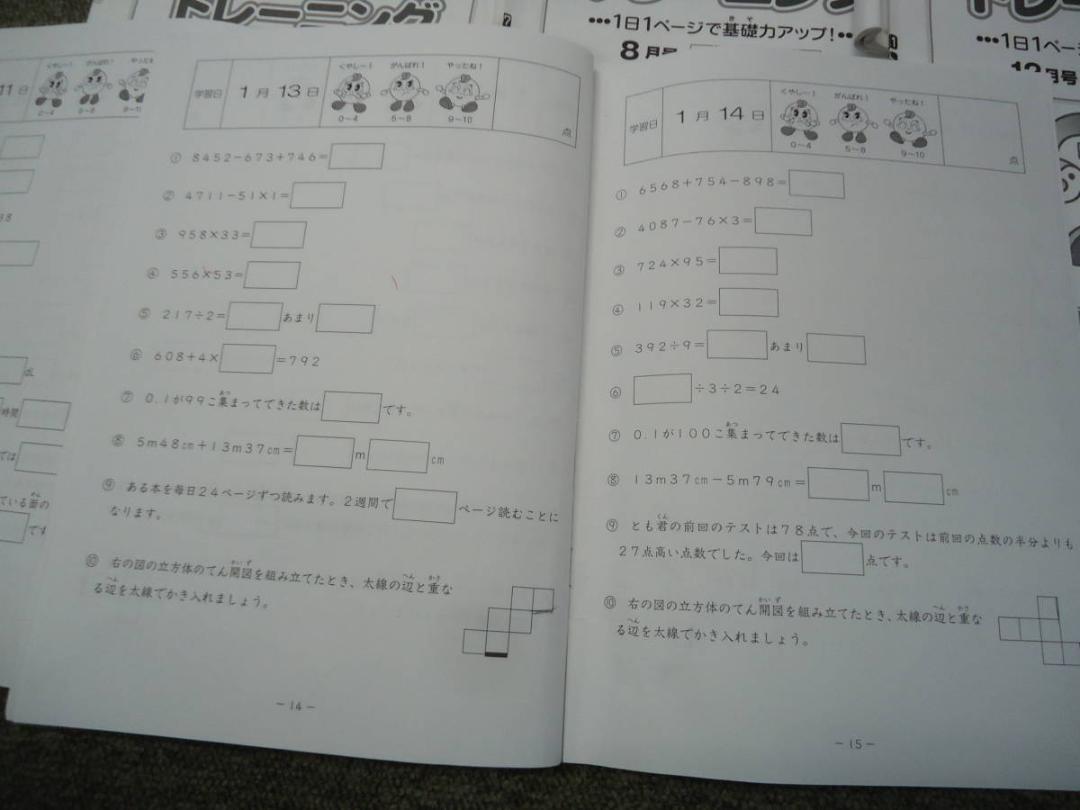 トレーニング
•••1日1ページで基礎力アップ!••
8月号
•••1日1ページ
12月号
11日
くやしー! がんばれ! やったね
0~4 5~8 9~10
点
時間
では
ている面の
です
学習日 1月13日
くやしー! がんばれ! やったね!
0~4 5~8 9~10
点
① 8452-673+746=
② 4711-51×1=
③ 958×33=
④ 556×53=
⑤ 217÷2= あまり
⑥ 608+4× =792
⑦ 0.1が99こ集まってできた数は です。
⑧ 5m48cm+13m37cm= m cm
⑨ ある本を毎日24ページずつ読みます。2週間で ページ読むことに
なります。
⑩ 右の図の立方体のてん開図を組み立てたとき、太線の辺と重な
る辺を太線でかき入れましょう。
-14-
学習日 1月14日
くやしー! がんばれ! やったね!
0~4 5~8 9~10
点
① 6568+754-898=
② 4087-76×3=
③ 724×95=
④ 119×32=
⑤ 392÷9= あまり
⑥ ÷3÷2=24
⑦ 0.1が100こ集まってできた数は です。
⑧ 13m37cm-5m79cm= m cm
⑨ とも君の前回のテストは78点で、今回のテストは前回の点数の半分よりも
27点高い点数でした。今回は 点です。
⑩ 右の図の立方体のてん開図を組み立てたとき、太線の辺と重な
る辺を太線でかき入れましょう。
-15-